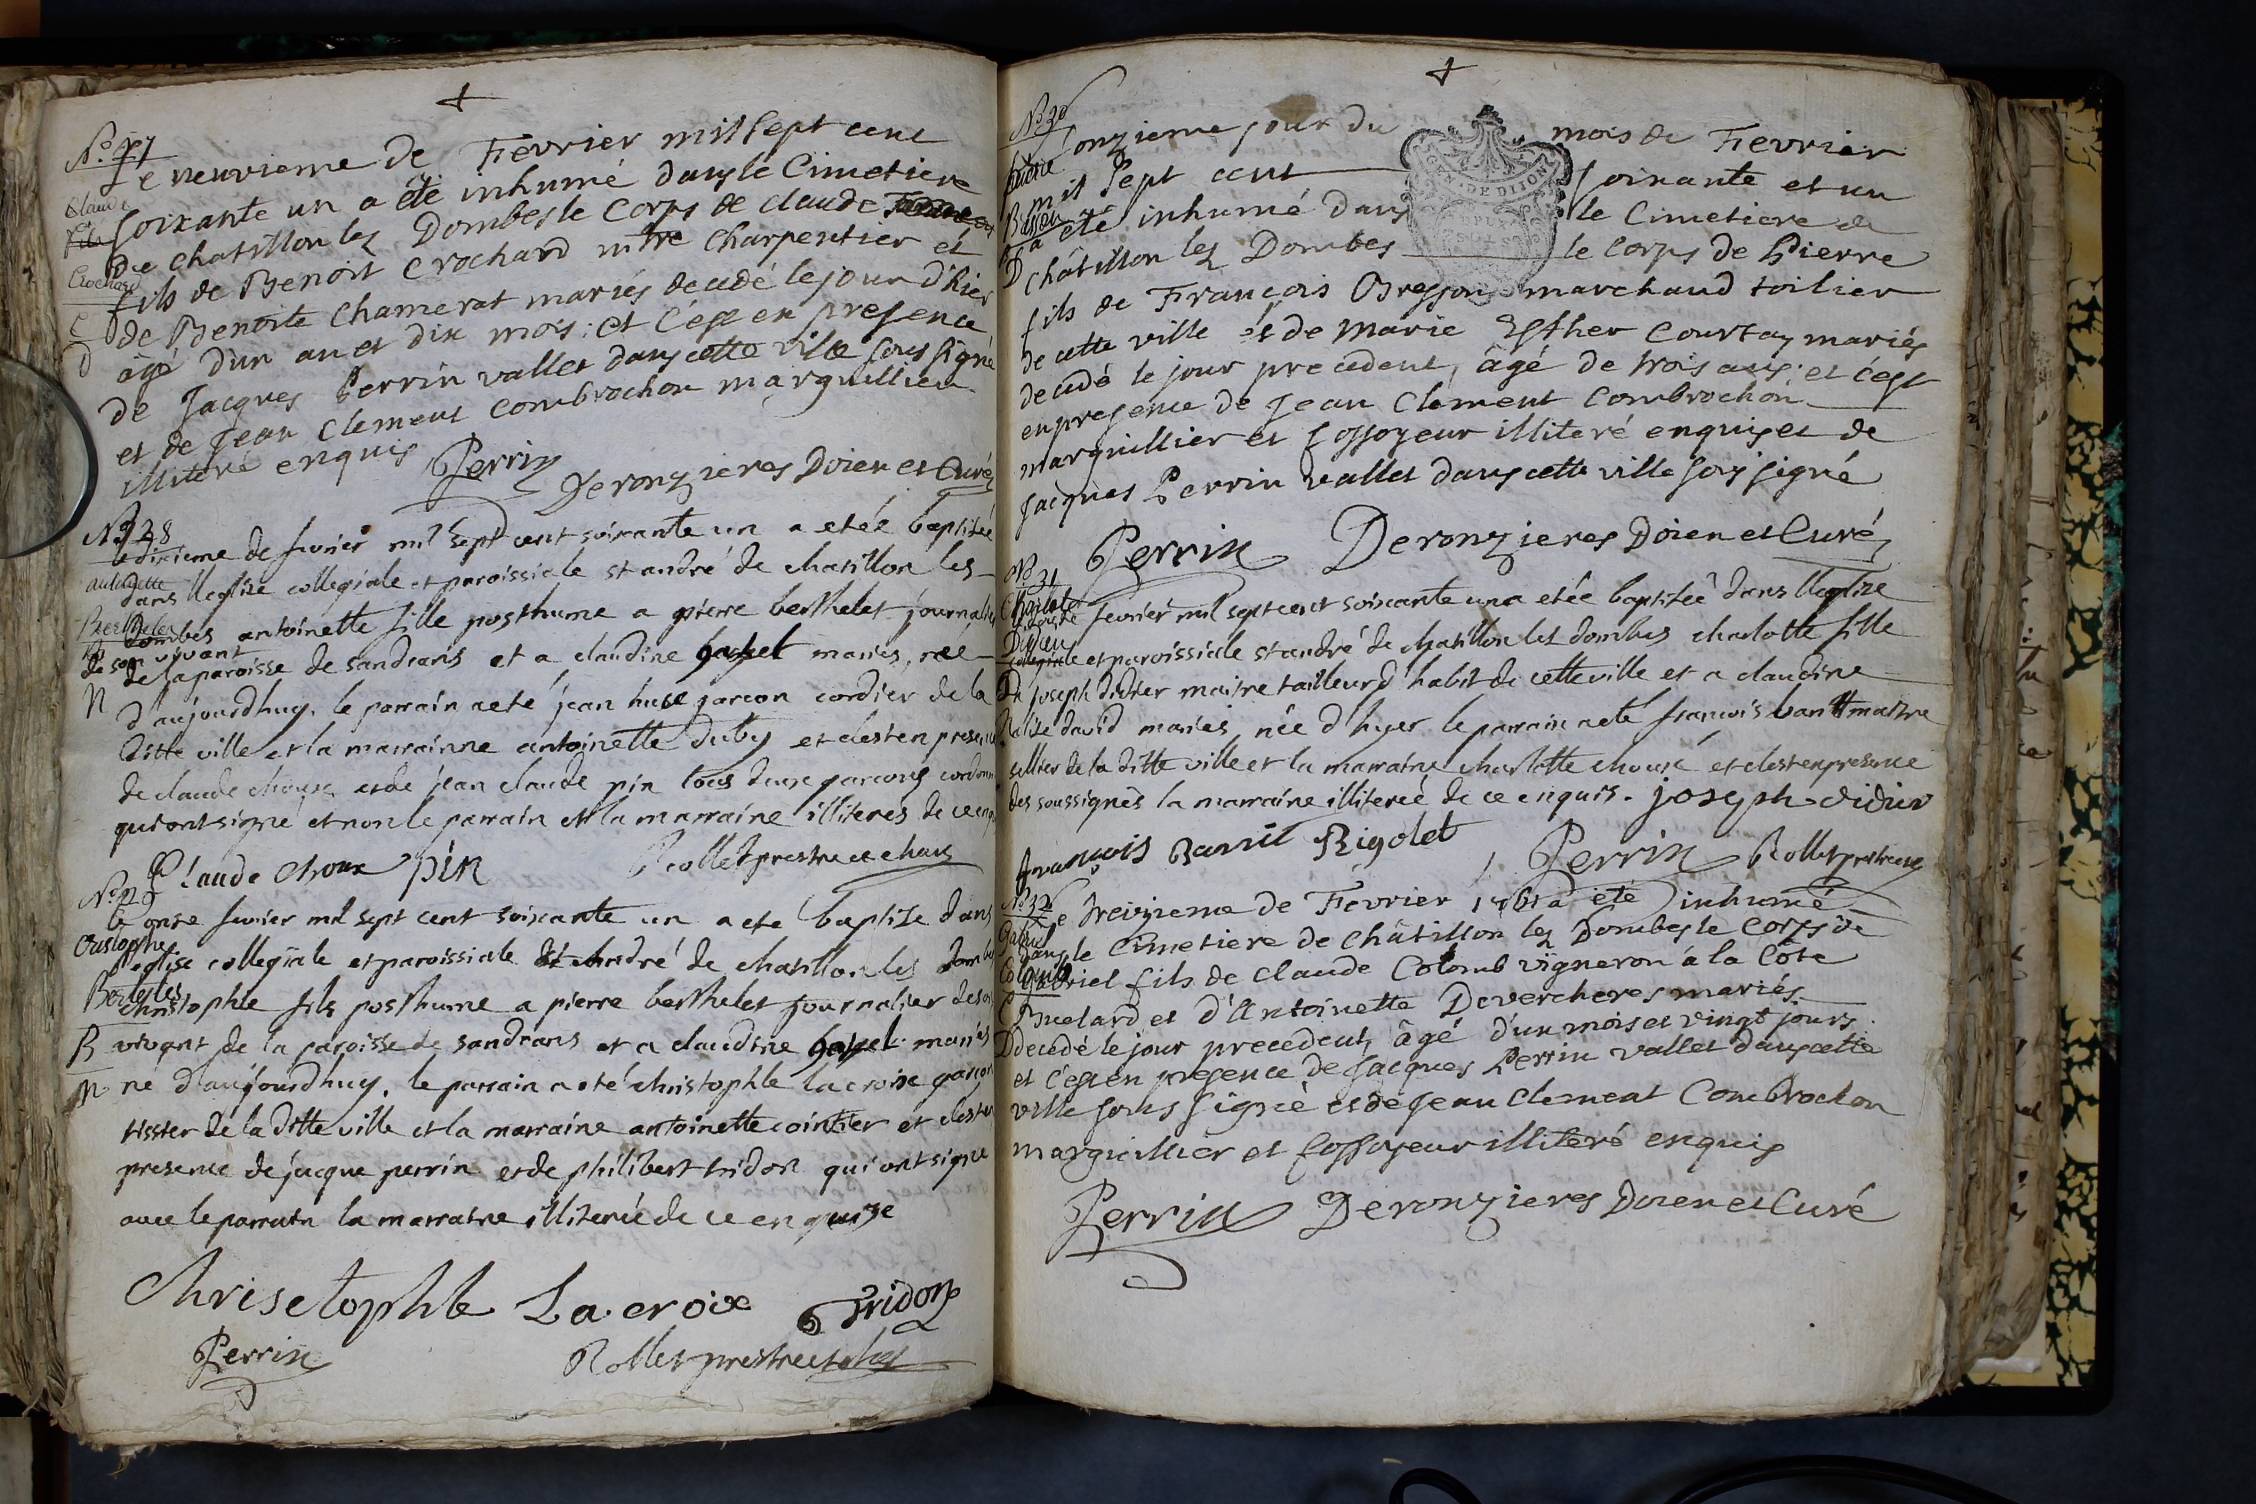 N° 27
Le neuvieme de Fevrier mil sept cent
Claude
soixante un a été inhumé dans le Cimetiere
fils
de chatillon lez Dombes le Corps de claude
Crochard
fils de Benoit Crochard mtre Charpentier et
de Benoite Chamerat mariés decedé le jour d'hier
D
âgé d'un an et dix mois; et c'est en presence
de Jacques Perrin vallet dans cette ville sous signé
et de Jean Clement Combrochon marguillier
illiteré enquis
Perrin Deronzieres Doien et Curé
N° 28
le dixieme de fevrier mil sept cent soixante un a etée baptisée
antoinette
dans l'eglise collegiale et paroissiale st andré de chatillon les
Berthelet
dombes antoinette fille posthume a pierre berthelet journalier
de son vivant
de la paroisse de sandrans et a claudine mariés, née
N
d'aujourdhuy. le parrain a eté jean garcon cordier de la
ditte ville et la marrainne antoinette duby et c'est en presence
de claude choux et de jean claude pin tous deux garcons
qui ont signe et non le parrain et la marraine illiteres de ce enquis
Claude Choux pin Rollet prestre et chan
N° 29
le onze fevrier mil sept cent soixante un a ete baptise dans
Cristophe
l'eglise collegiale et paroissiale St andré de chatillon les dombes
Berthelet
christophle fils posthume a pierre berthelet journalier de son
B vivant de la paroisse de sandrans et a claudine mariés
N né d'aujourdhuy. le parrain a eté christophle lacroix garcon
tissier de la ditte ville et la marraine antoinette cointier et c'est en
presence de jacque perrin et de philibert tridon qui ont signe
avec le parrain la marraine illiterée de ce enquise
Chrisetophle La croix Tridon
Perrin Rollet prestre et chan
N° 30
L'onzieme jour du mois de Fevrier
pierre
mil sept cent soixante et un
GEN. DE DIJON
Bresson
a été inhumé dans le Cimetiere de
D
Châtillon lez Dombes le Corps de Pierre
fils de François Bresson marchand toilier
de cette ville et de Marie Esther Courtay mariés
decedé le jour precedent, âgé de trois ans; et c'est
en presence de Jean Clement Combrochon
marguillier et fossoyeur illiteré enquis et de
Jacques Perrin vallet dans cette ville sous signé
Perrin Deronzieres Doien et Curé
N° 31
Charlotte
le douze fevrier mil sept cent soixante un a etée baptisée dans l'eglise
Didier
collegiale et paroissiale st andré de chatillon les dombes charlotte fille
de joseph didier maitre tailleur d'habit de cette ville et a claudine
david mariés née d'hyer le parrain a eté françois maitre
sellier de la ditte ville et la marraine charlotte chouse et c'est en presence
des soussignés la marraine illiterée de ce enquis. joseph didier
françois Rigolet Perrin Rollet prestre
N° 32
Le treizieme de Fevrier 1761 a été inhumé
Gabriel
dans le Cimetiere de Châtillon lez Dombes le Corps de
Colomb
Gabriel fils de Claude Colomb vigneron à la Côte
Buelard et d'Antoinette Devercheres mariés
D decedé le jour precedent, âgé d'un mois et vingt jours
et c'est en presence de Jacques Perrin vallet dans cette
ville sous signé et de Jean Clement Combrochon
marguillier et fossoyeur illiteré enquis
Perrin Deronzieres Doien et Curé